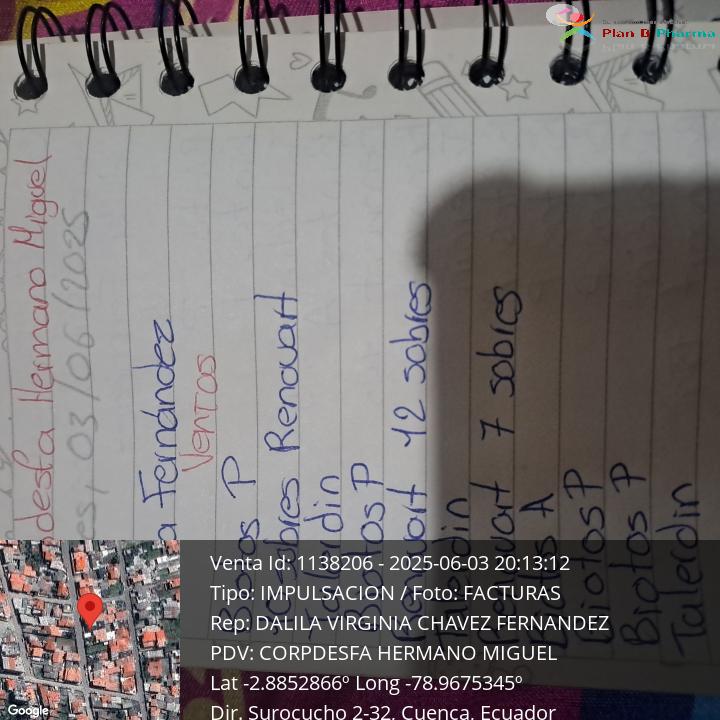 Plan B Pharma
desfa Hermano Miguel
es, 03/06/2025
a Fernández
Ventas
P
Renovart
Biotos P
Renovart 12 sobres
Renovart 7 sobres
A
Biotos P
Biotos P
Talerdin
Venta Id: 1138206 - 2025-06-03 20:13:12
Tipo: IMPULSACION / Foto: FACTURAS
Rep: DALILA VIRGINIA CHAVEZ FERNANDEZ
PDV: CORPDESFA HERMANO MIGUEL
Lat -2.8852866º Long -78.9675345º
Dir. Surocucho 2-32, Cuenca, Ecuador
Google